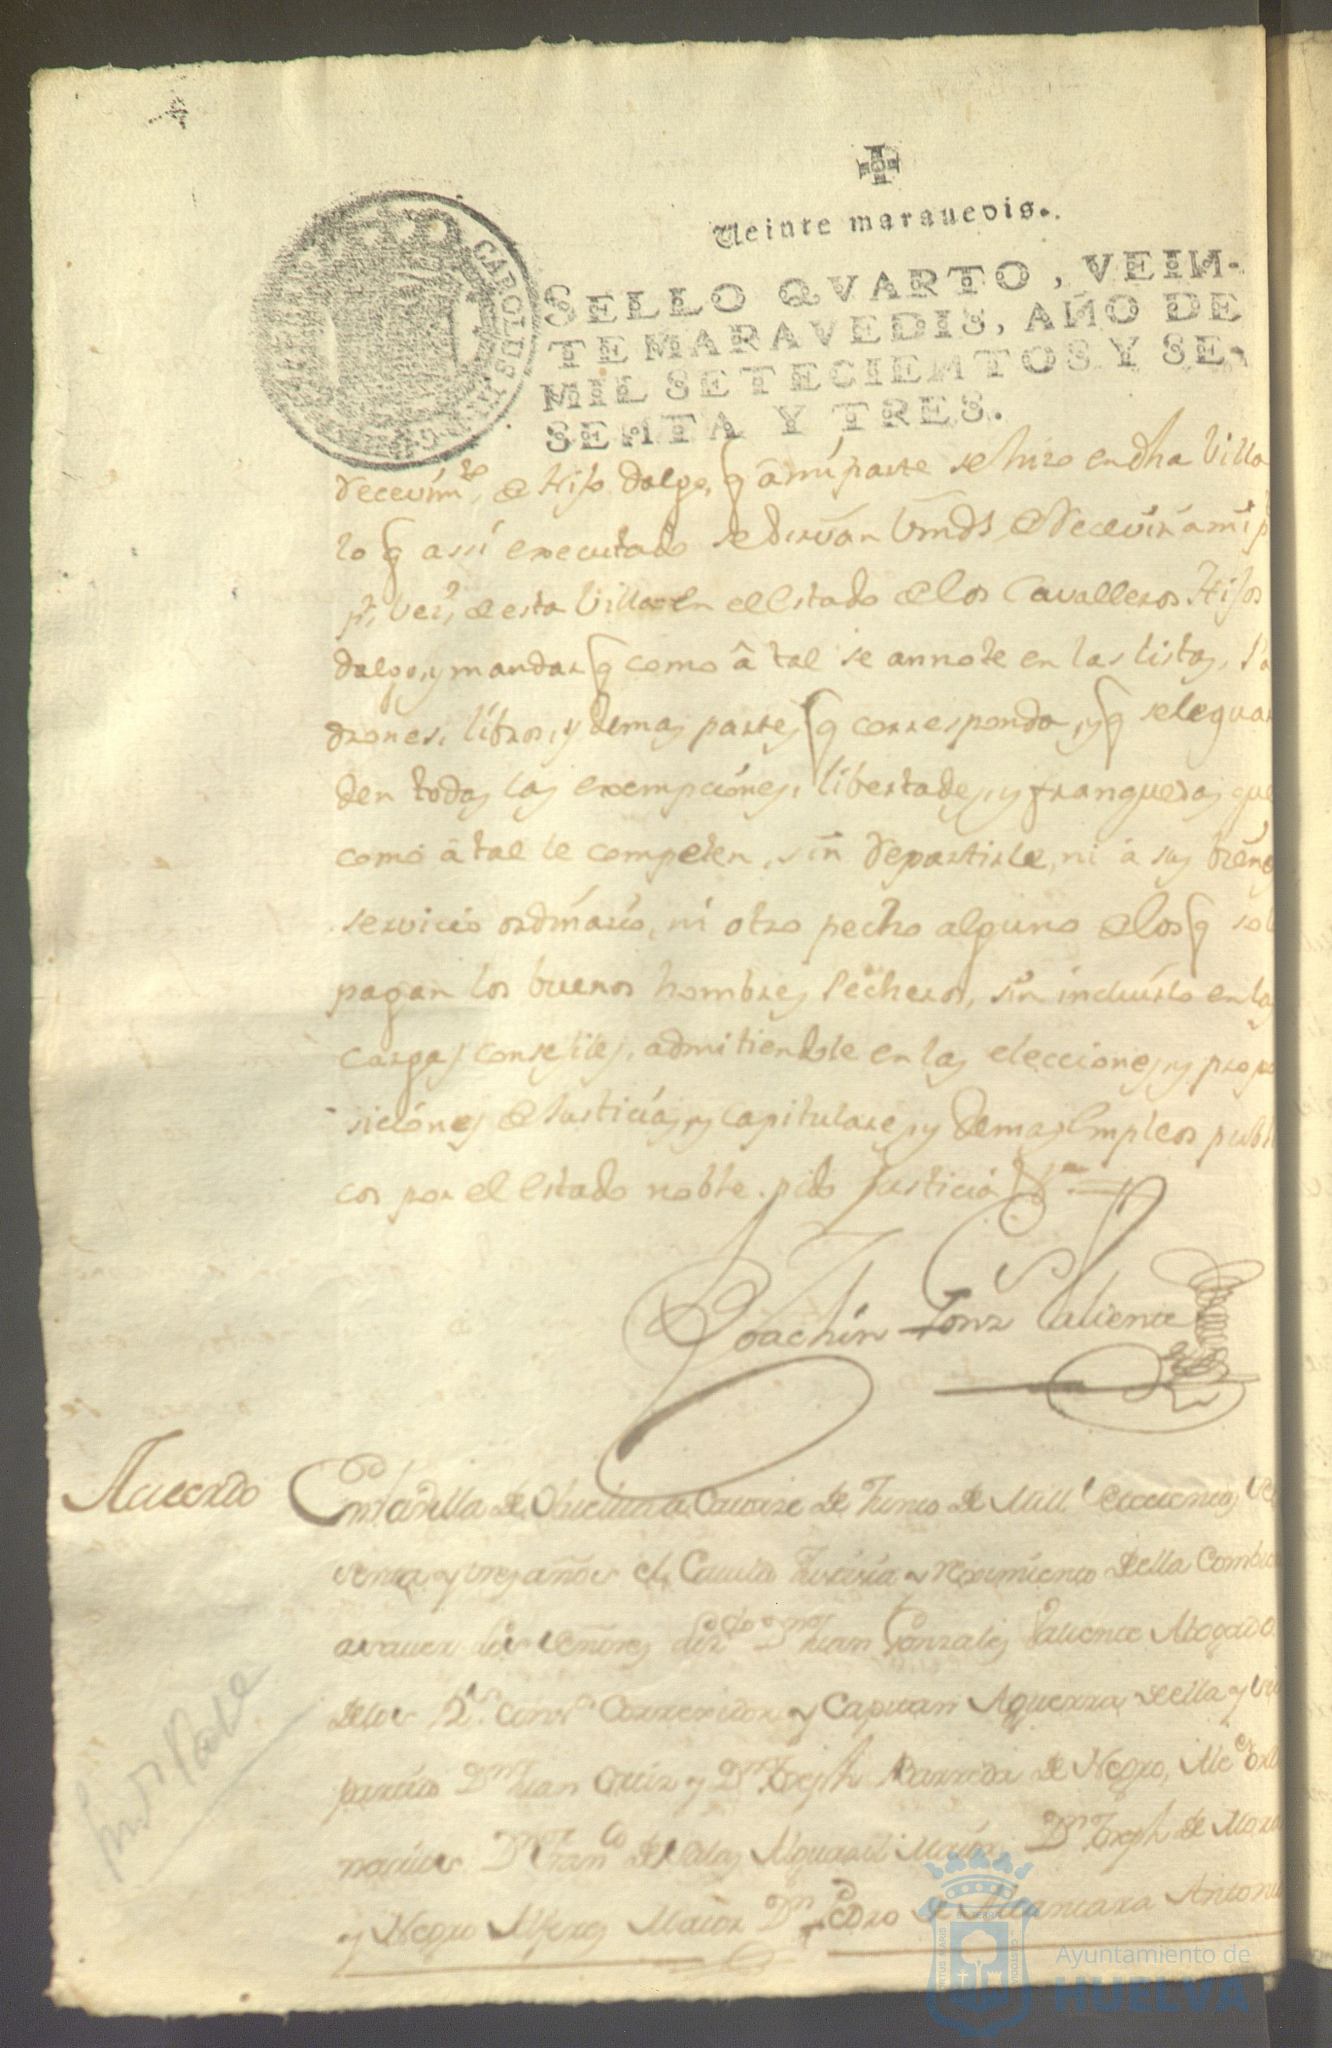 Veinte marauedis.
SELLO QVARTO, VEIN-
TE MARAVEDIS, AÑO DE
MIL SETECIENTOS Y SE-
SENTA Y TRES.
CAROLUS III
recevim.to, de Hijo dalgo, q̃ a mi parte se hizo en dha Villa
lo q̃ assi executado se sirvan Vmds, de recevir a mi p
p.r vez.o de esta Villa en el Estado de los Cavalleros Hijos
dalgo, y mandar q̃ como â tal se annote en las listas, Pa
drones, libros, y demas partes q̃ corresponda, y q̃ se le guar
den todas las exempciones, libertades, y franquezas que
como â tal le competen, sin repartirle, ni a sus bienes
servicio ordinario, ni otro pecho alguno de los q̃ sol
pagan los buenos hombres Pecheros, sin incluirlo en las
cargas consejiles, admitiendole en las elecciones, y propo
siciones de Justicias, y Capitulares, y demas Empleos publi
cos por el Estado noble. pido Justicia
Joachin Gonz Valiente
Acuerdo
En la Villa de Huelva a Catorze de Junio de Mill setecientos se
senta y tres años el Cavildo Justicia y reximiento della Combie
a saver los señores Liz.do Dn Juan Gonzales Valiente Abogado
de los R.s Cons.s Correxidor y Capitan Aguerra della y su
partido Dn Juan Ortiz y Dn Joseph Barreda de Negro, Alc.es ordi
narios Dn Fran.co de Alguasil Maior, Dn Joseph de Mora
y Negro Alferes Maior Dn Pedro de Alcantara Antonio
Ayuntamiento de
HUELVA